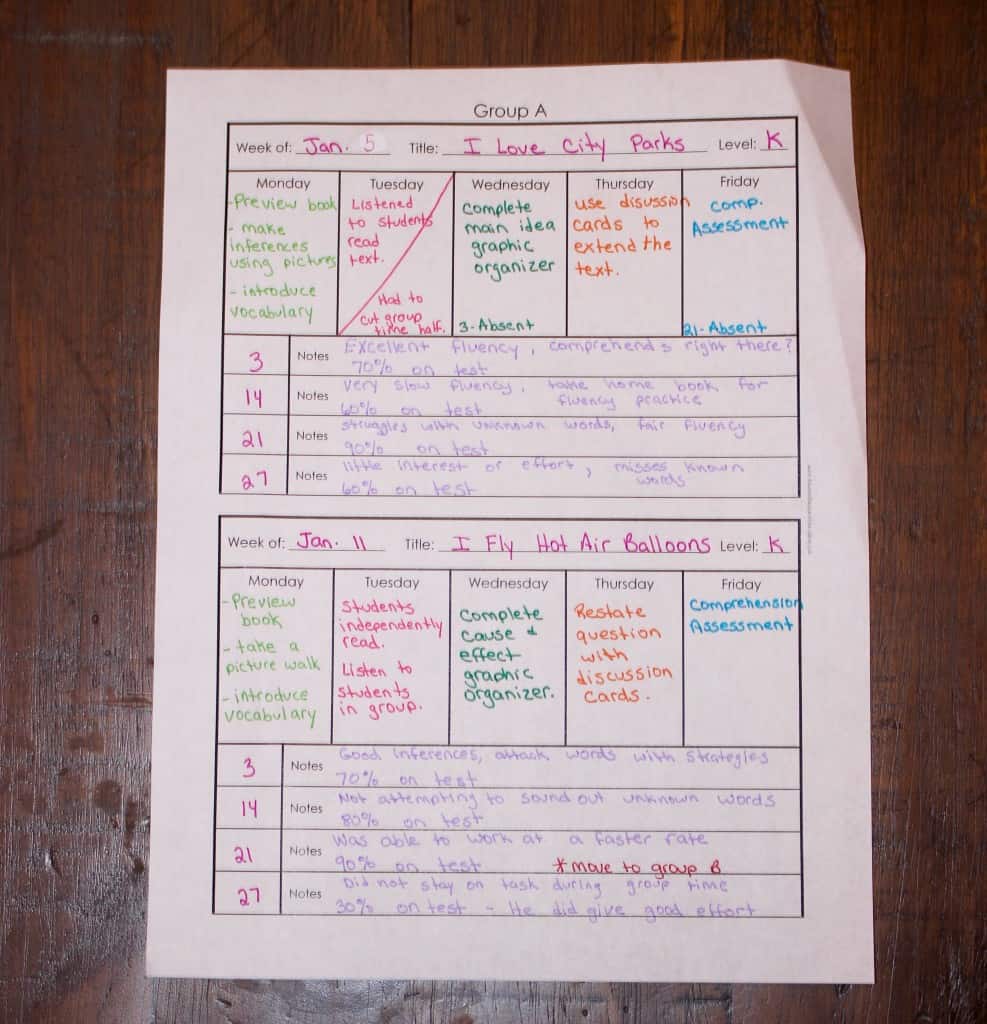 Group A
Week of: Jan. 5 Title: I Love City Parks Level: K
Monday Tuesday Wednesday Thursday Friday
-Preview book
- make
inferences
using pictures
- introduce
vocabulary
Listened
to students
read
text.
Had to
cut group
time half.
Complete
main idea
graphic
organizer
3-Absent
use disussion
cards to
extend the
text.
comp.
Assessment
21-Absent
3 Notes Excellent fluency, comprehends right there?
70% on test
14 Notes Very slow fluency, take home book for
fluency practice
60% on test
21 Notes struggles with unknown words, fair fluency
90% on test
27 Notes little interest or effort, misses known
words
60% on test
Week of: Jan. 11 Title: I Fly Hot Air Balloons Level: K
Monday Tuesday Wednesday Thursday Friday
-Preview
book
- take a
picture walk
- introduce
vocabulary
Students
independently
read.
Listen to
students
in group.
Complete
cause &
effect
graphic
organizer.
Restate
question
with
discussion
cards.
Comprehension
Assessment
3 Notes Good inferences, attack words with strategies
70% on test
14 Notes Not attempting to sound out unknown words
80% on test
21 Notes Was able to work at a faster rate
90% on test *move to group B
27 Notes Did not stay on task during group time
30% on test - He did give good effort